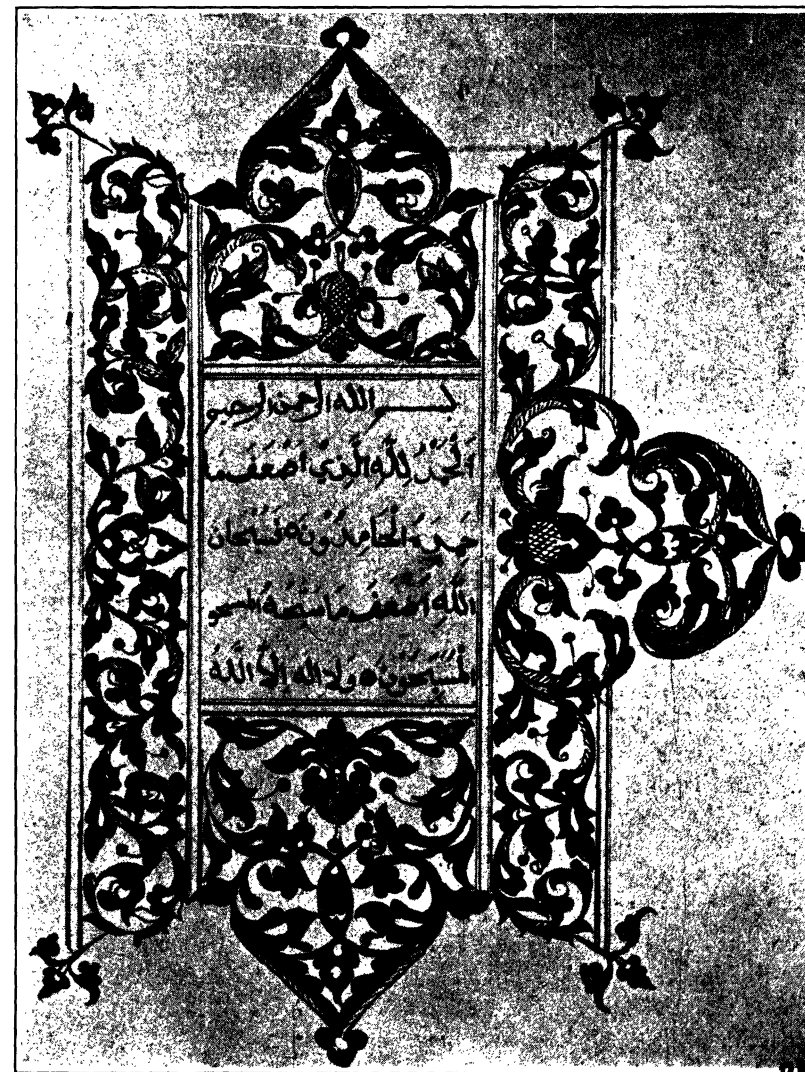 بسم الله الرحمن الرحيم
اَلْحَمْدُ لِلَّهِ الَّذِي اَضْعَفَ مَا
حَمِدَهُ الْحَامِدُوْنَ ه سُبْحَان
اللَّهِ اَضْعَفَ مَا سَبَّحَهُ
الْمُسَبِّحُوْنَ ه وَلَا اله اِلَّا اللَّهُ